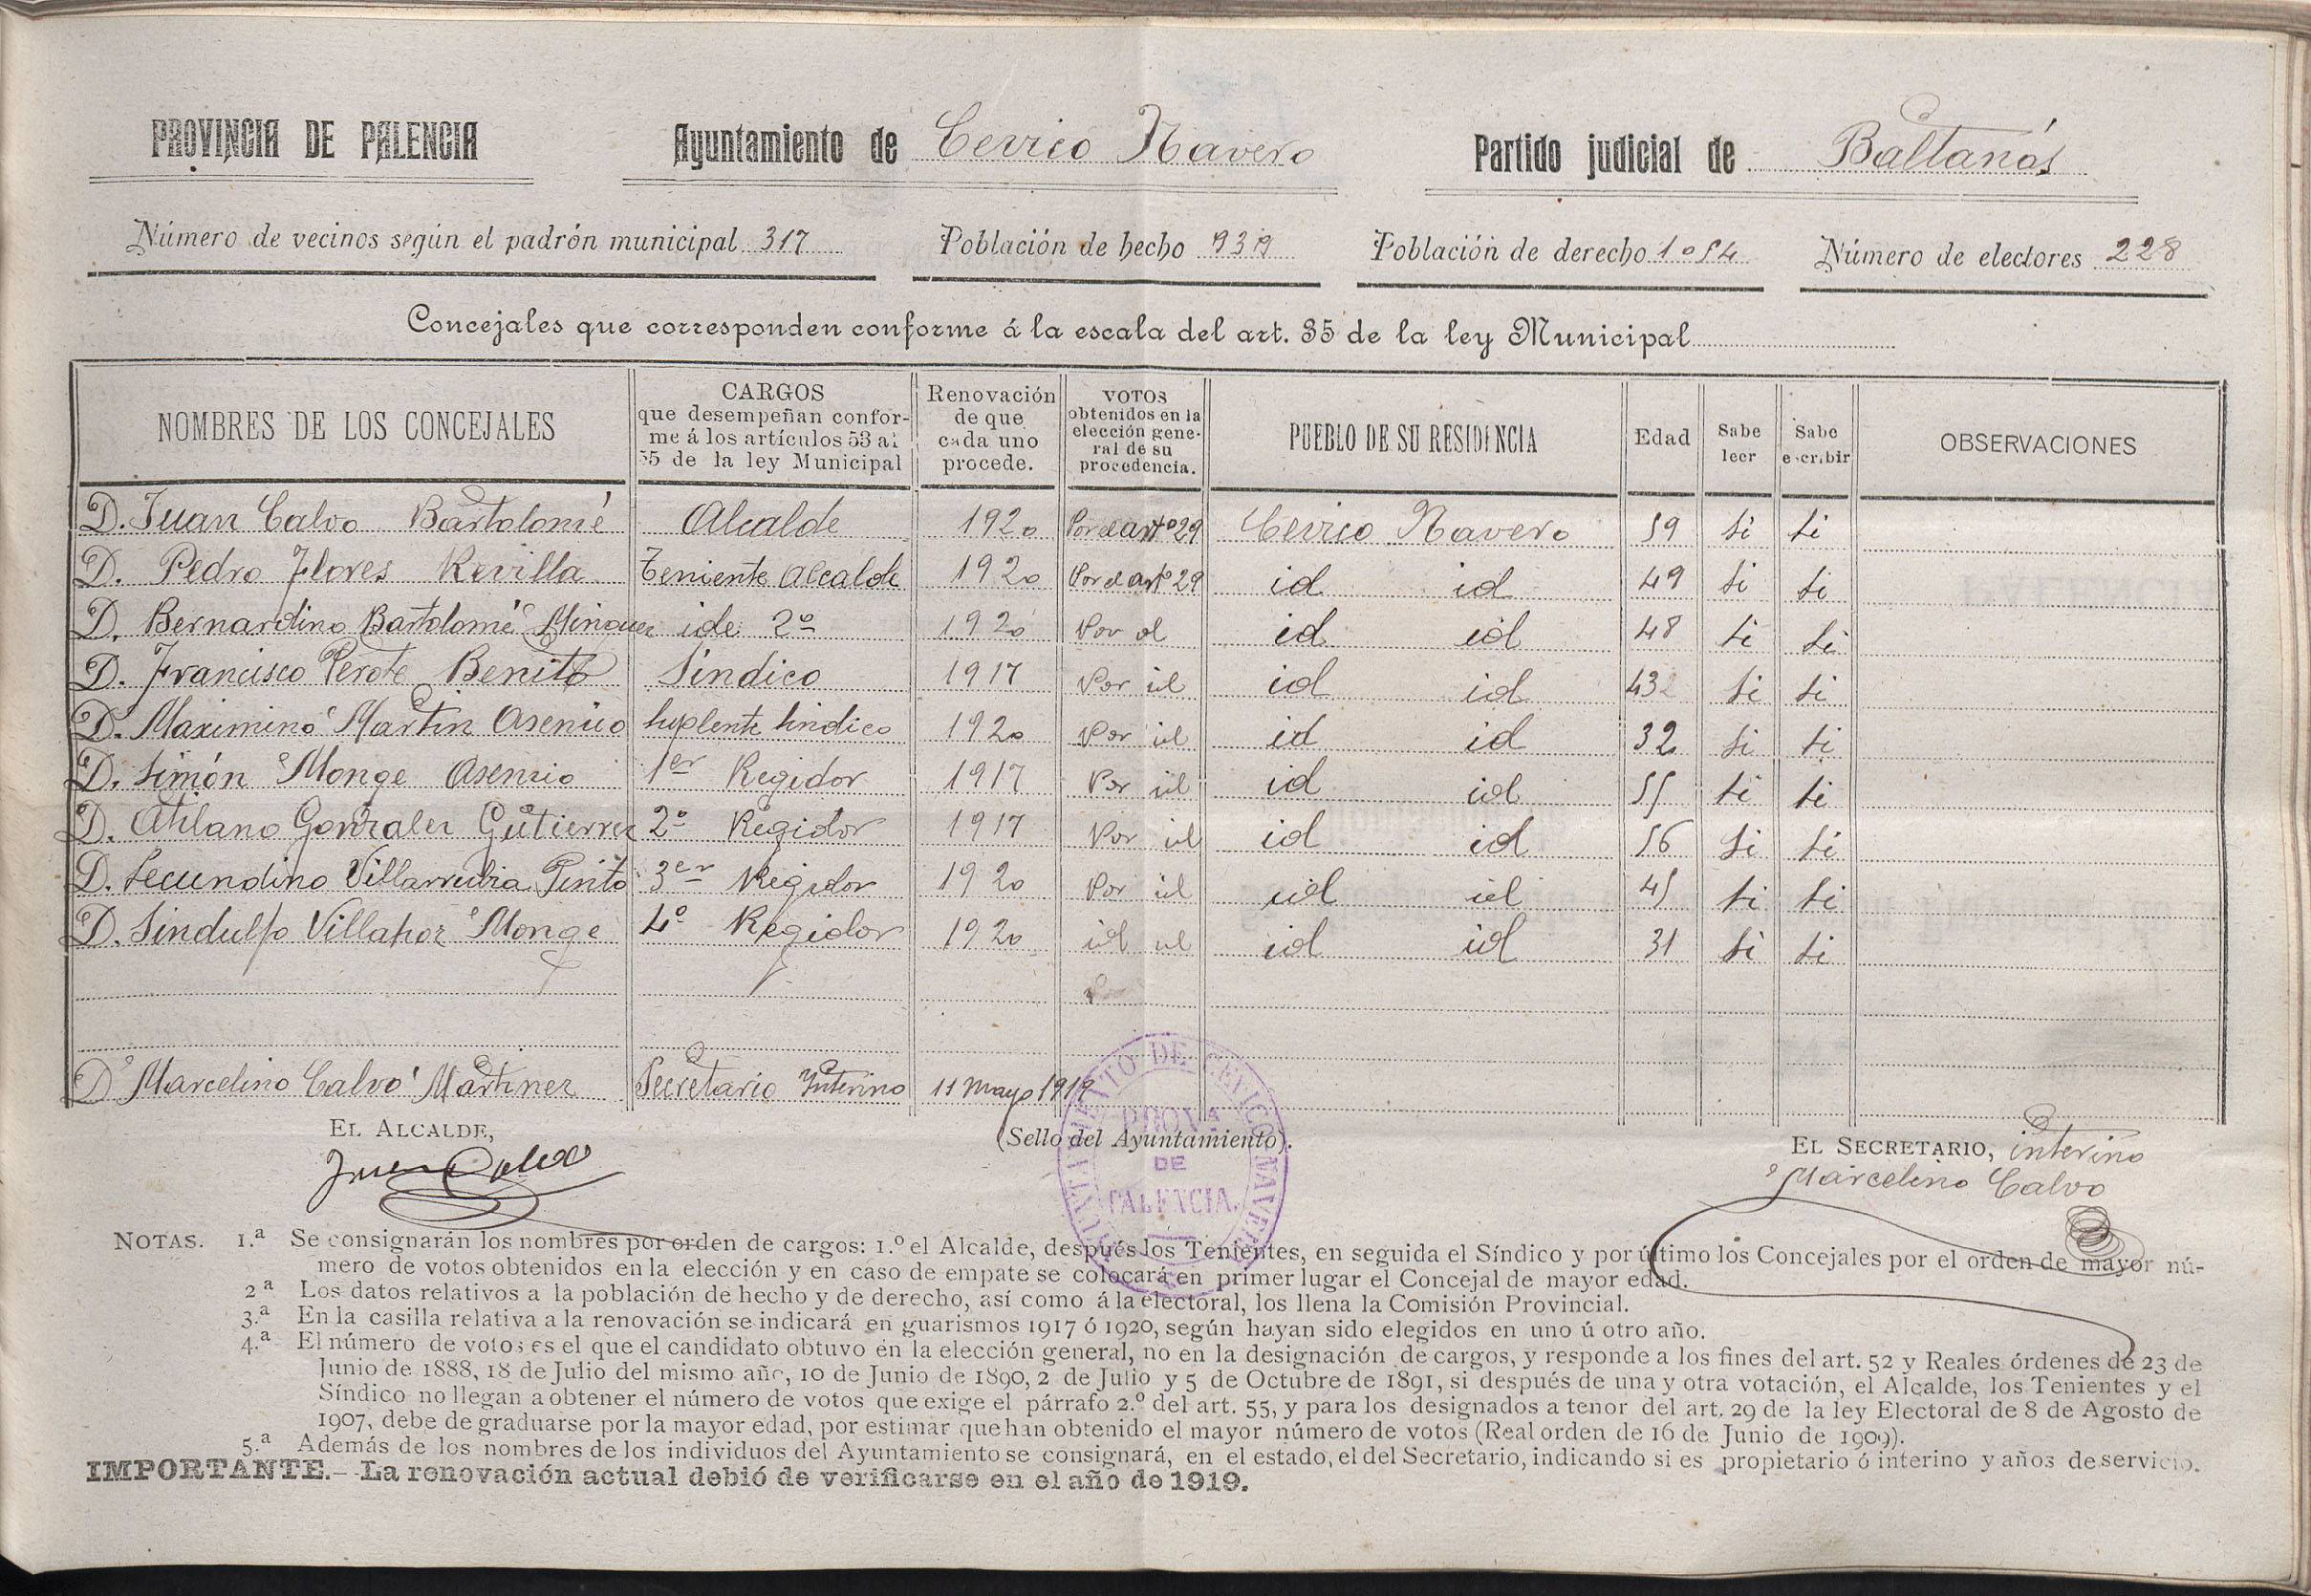 PROVINCIA DE PALENCIA Ayuntamiento de Cevico Navero Partido judicial de Baltanás
Número de vecinos según el padrón municipal 317 Población de hecho 939 Población de derecho 1054 Número de electores 228
Concejales que corresponden conforme á la escala del art. 35 de la ley Municipal
NOMBRES DE LOS CONCEJALES
CARGOS
que desempeñan confor-
me á los artículos 53 al
55 de la ley Municipal
Renovación
de que
cada uno
procede.
VOTOS
obtenidos en la
elección gene-
ral de su
procedencia.
PUEBLO DE SU RESIDENCIA
Edad
Sabe
leer
Sabe
escribir
OBSERVACIONES
D. Juan Calvo Bartolomé Alcalde 1920 Por el artº 29 Cevico Navero 59 Si Si
D. Pedro Flores Revilla Teniente Alcalde 1920 Por el artº 29 id id 49 Si Si
D. Bernardino Bartolomé Minguez ide 2º 1920 Por id id id 48 Si Si
D. Francisco Perote Benito Síndico 1917 Por id id id 43 Si Si
D. Maximino Martin Asensio Suplente Sindico 1920 Por id id id 32 Si Si
D. Simón Monge Asensio 1er Regidor 1917 Por id id id 55 Si Si
D. Atilano Gonzalez Gutierrez 2º Regidor 1917 Por id id id 56 Si Si
D. Secundino Villarrubia Pinto 3er Regidor 1920 Por id id id 45 Si Si
D. Sindulfo Villahoz Monge 4º Regidor 1920 id id id id 31 Si Si
D Marcelino Calvo Martinez Secretario Interino 11 Mayo 1919
EL ALCALDE,
Juan Calvo
(Sello del Ayuntamiento).
AYUNTAMIENTO DE CEVICO NAVERO
PROVA
DE
PALENCIA.
EL SECRETARIO, interino
Marcelino Calvo
NOTAS. 1.ª Se consignarán los nombres por orden de cargos: 1.º el Alcalde, después los Tenientes, en seguida el Síndico y por último los Concejales por el orden de mayor nú-
mero de votos obtenidos en la elección y en caso de empate se colocará en primer lugar el Concejal de mayor edad.
2.ª Los datos relativos a la población de hecho y de derecho, así como á la electoral, los llena la Comisión Provincial.
3.ª En la casilla relativa a la renovación se indicará en guarismos 1917 ó 1920, según hayan sido elegidos en uno ú otro año.
4.ª El número de votos es el que el candidato obtuvo en la elección general, no en la designación de cargos, y responde a los fines del art. 52 y Reales órdenes de 23 de
Junio de 1888, 18 de Julio del mismo año, 10 de Junio de 1890, 2 de Julio y 5 de Octubre de 1891, si después de una y otra votación, el Alcalde, los Tenientes y el
Síndico no llegan a obtener el número de votos que exige el párrafo 2.º del art. 55, y para los designados a tenor del art. 29 de la ley Electoral de 8 de Agosto de
1907, debe de graduarse por la mayor edad, por estimar que han obtenido el mayor número de votos (Real orden de 16 de Junio de 1909).
5.ª Además de los nombres de los individuos del Ayuntamiento se consignará, en el estado, el del Secretario, indicando si es propietario ó interino y años de servicio.
IMPORTANTE.– La renovación actual debió de verificarse en el año de 1919.